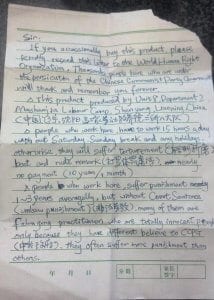 Sir:
If you occassionally buy this product, please
kindly resend this letter to the World Human Right
Organization. Thousands people here who are under
the persicution of the Chinese Communist Party Government
will thank and remember you forever.
This product produced by Unit 8, Department 2,
Masanjia Labour Camp, Shenyang, Liaoning, China
(中国,辽宁,沈阳,马三家
People who work here have to work 15 hours a day
with out Saturday, Sunday break and any holidays,
otherwise, they will suffer torturement
beat and rude remark nearly
no payment (10 yuan/1 month).
People who work here, suffer punishment nearly
1~3 years averagely, but without Court Sentence
(unlaw punishment) many of them are
Falungong practitioner, who are totally innocent people
only because they have different believe to CCPG
they often suffer more punishment than
others.
年 月 日